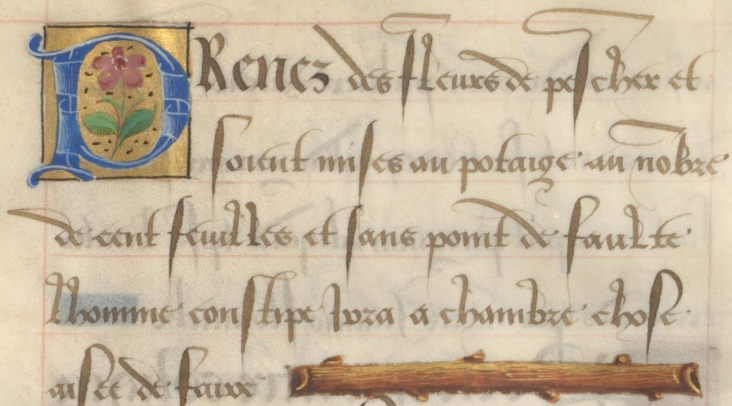 PRenez des fleurs de pescher et
soient mises au potaige au nõbre
de cent feuilles et sans point de faulte
lhomme constipe yra a chambre chose
aisee de faire